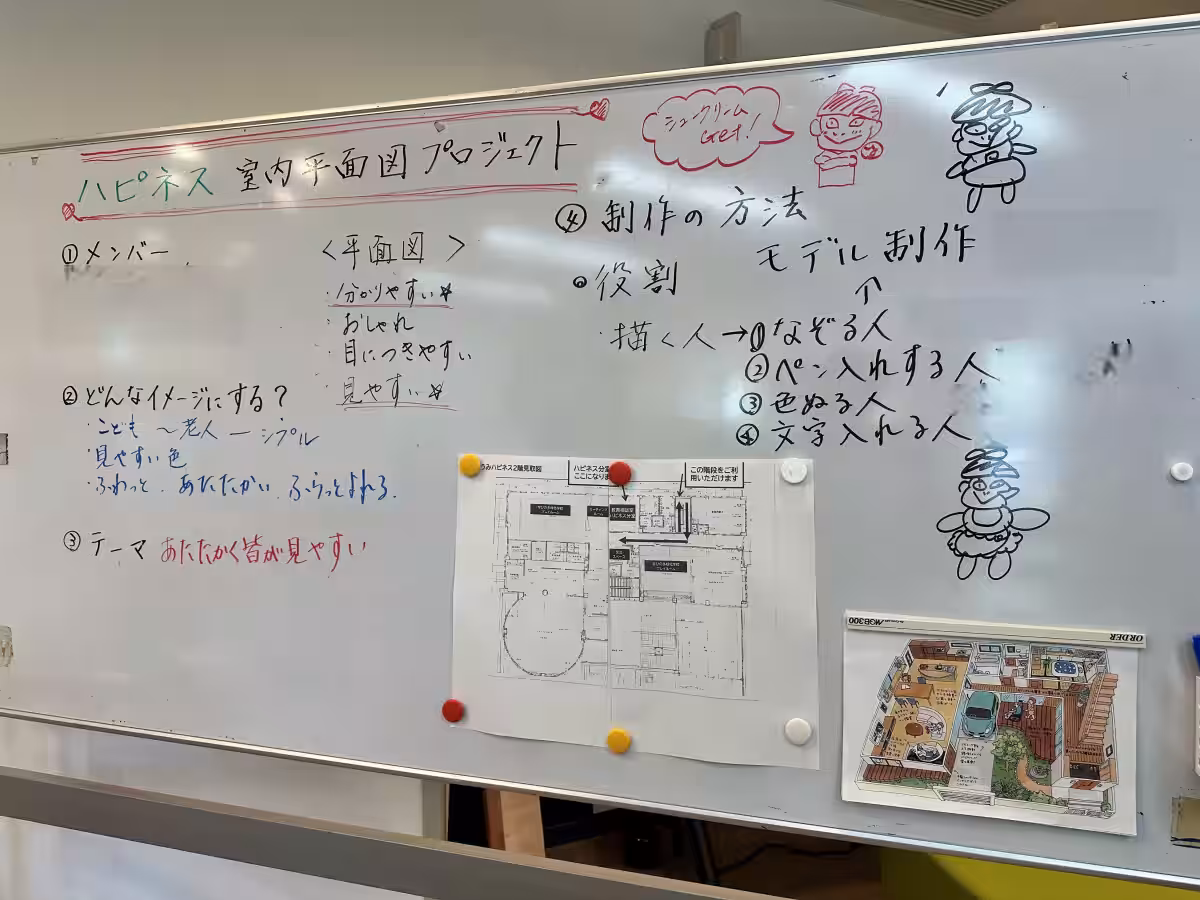 ハピネス 室内平面図 プロジェクト
①メンバー
<平面図>
・分かりやすい☆
・おしゃれ
・目につきやすい
・見やすい☆
②どんなイメージにする?
・こども ~老人 ー シンプル
・見やすい色
・ふわっと、あたたかい、ふらっとよれる。
③テーマ あたたかく皆が見やすい
シュークリーム
Get!
④制作の方法
モデル制作
↑
役割
・描く人→①なぞる人
②ペン入れする人
③色ぬる人
④文字入れる人
うみハピネス2階見取図
ハピネス分
ここになりま
この階段をご利
用いただけます
ORDER